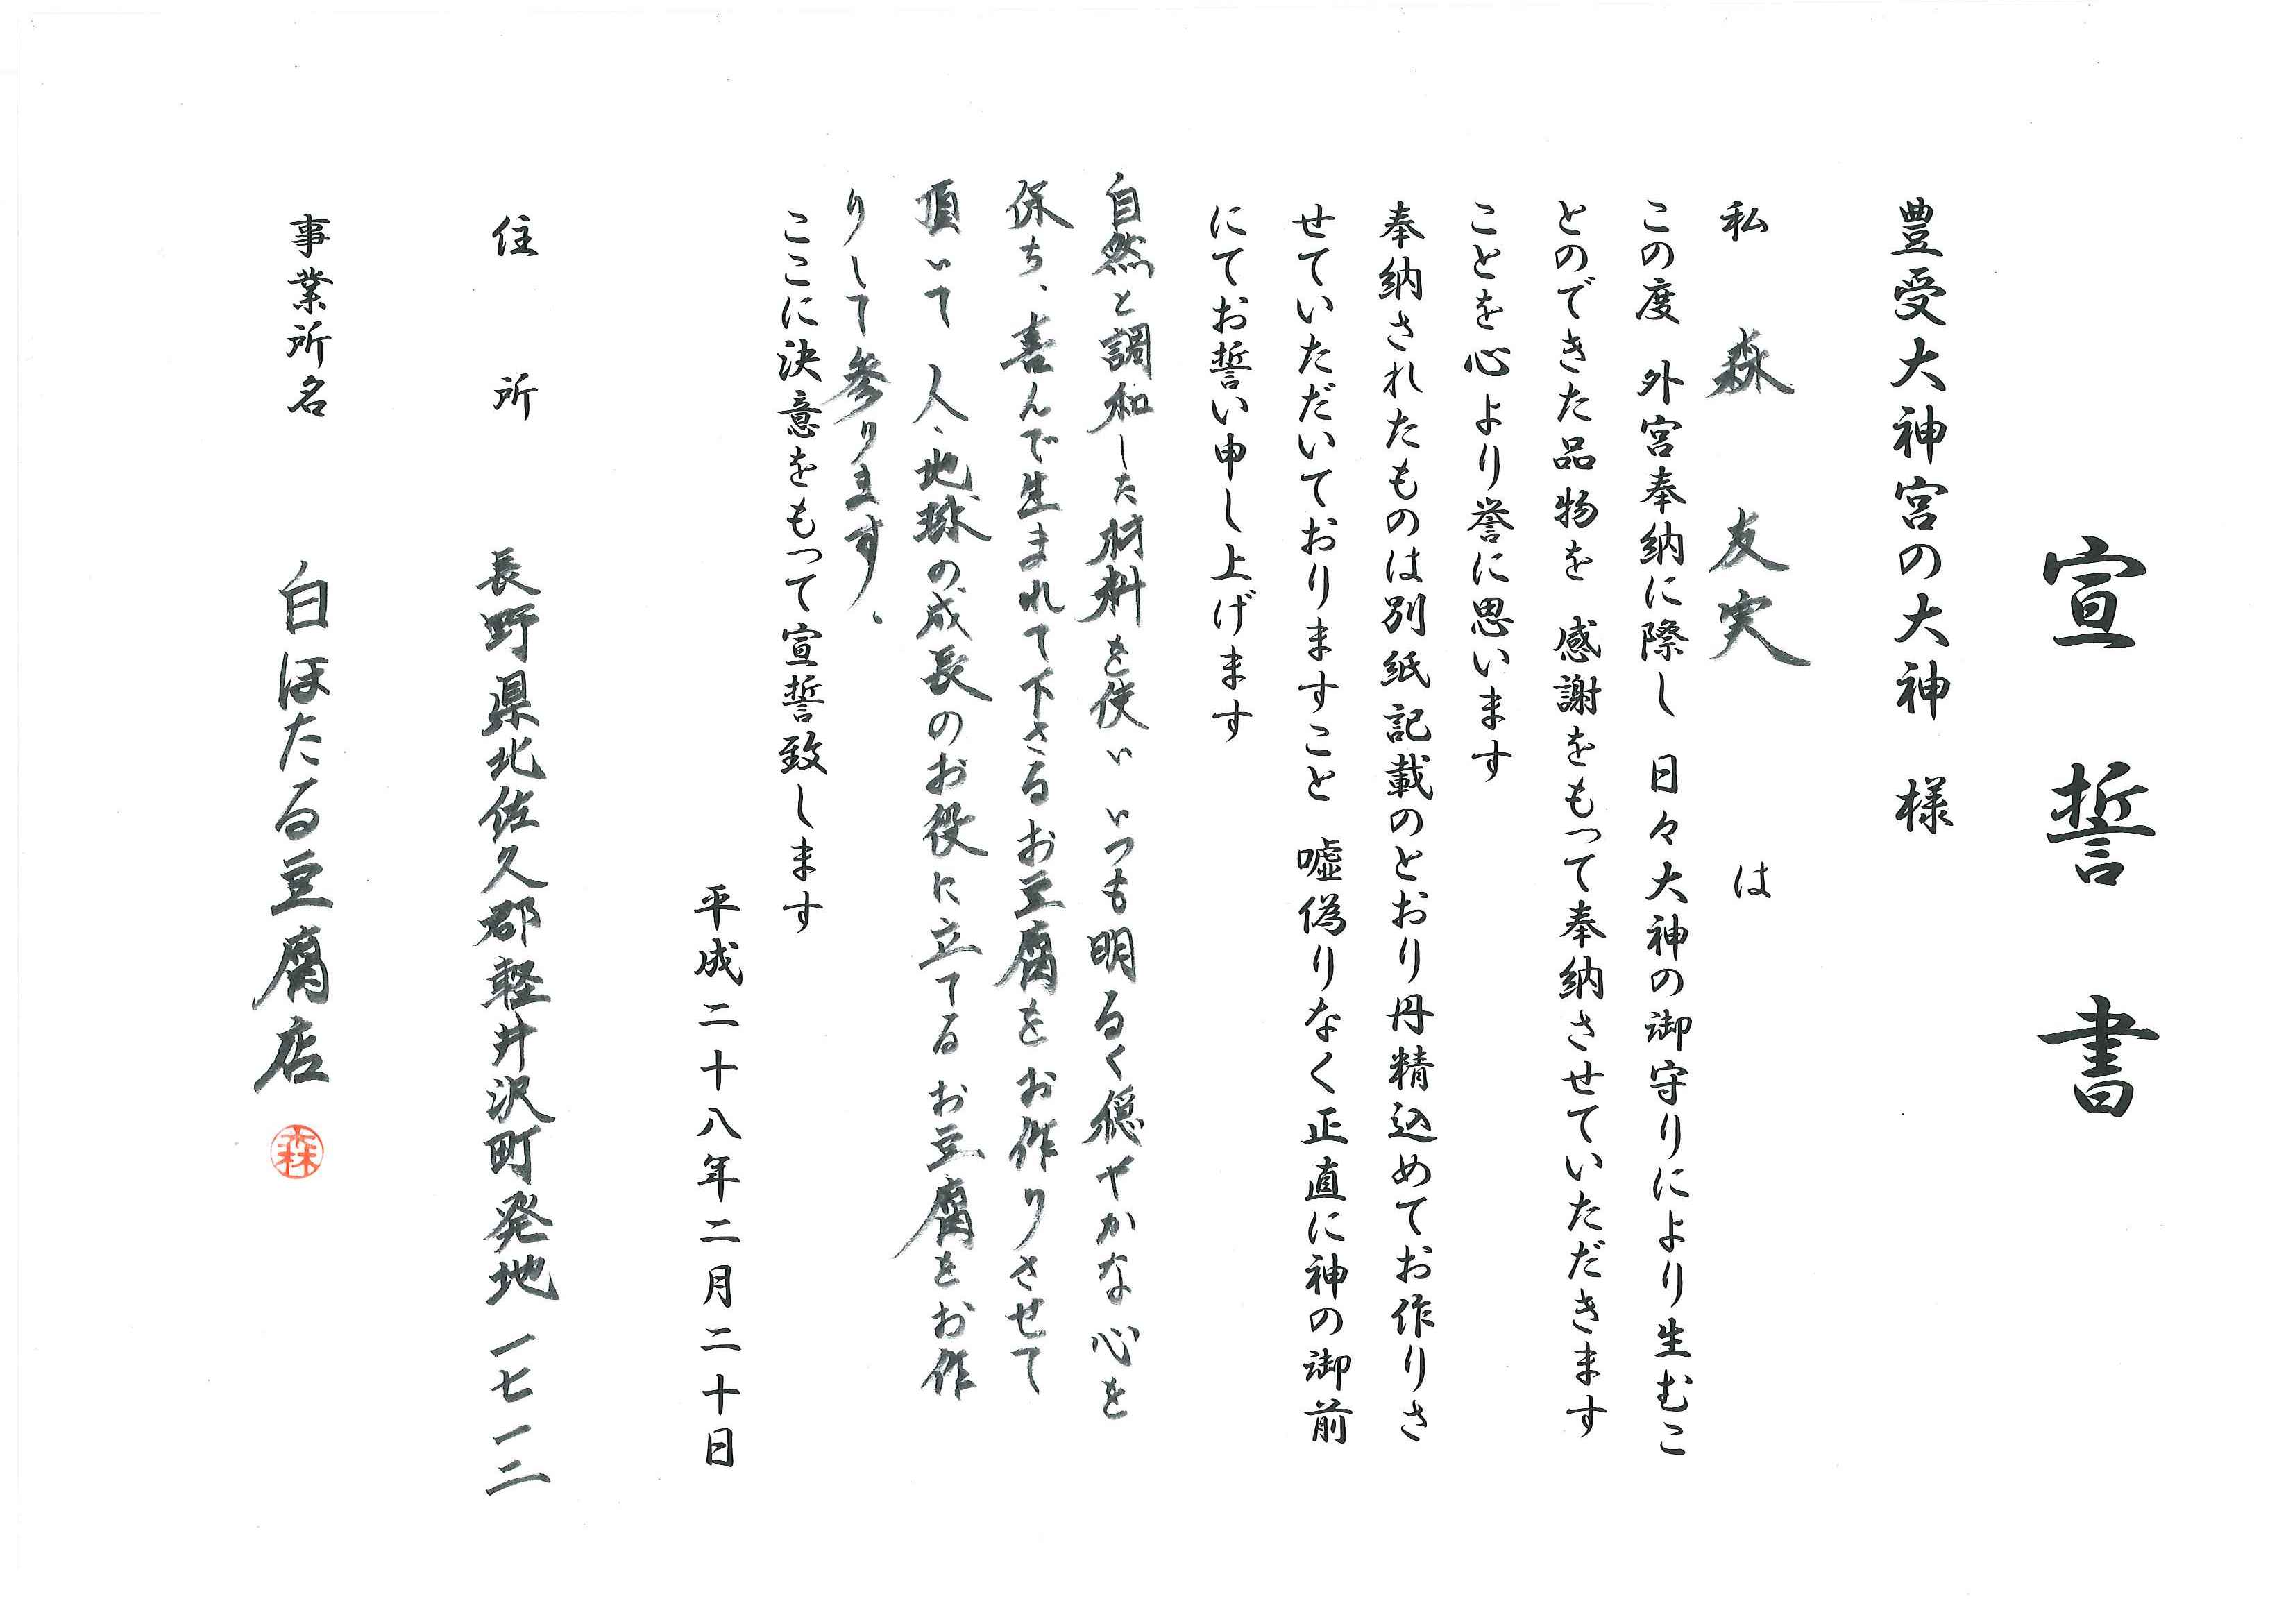 宣誓書
豊受大神宮の大神 様
私 森 友実 は
この度 外宮奉納に際し 日々大神の御守りにより生むこ
とのできた品物を 感謝をもって奉納させていただきます
ことを心より誉に思います
奉納されたものは別紙記載のとおり丹精込めてお作りさ
せていただいておりますこと 嘘偽りなく正直に神の御前
にてお誓い申し上げます
自然と調和した材料を使い いつも明るく穏やかな心を
保ち、喜んで生まれて下さるお豆腐をお作りさせて
頂いて 人、地球の成長のお役に立てるお豆腐をお作
りして参ります。
ここに決意をもって宣誓致します
平成二十八年二月二十日
住所 長野県北佐久郡軽井沢町発地一七一二
事業所名 白ほたる豆腐店
森